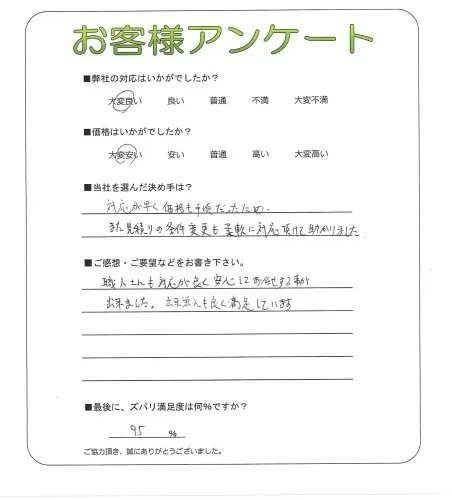 お客様アンケート
■弊社の対応はいかがでしたか?
大変良い 良い 普通 不満 大変不満
■価格はいかがでしたか?
大変安い 安い 普通 高い 大変高い
■当社を選んだ決め手は?
対応が早く価格も手頃だったため.
また見積りの条件変更も柔軟に対応頂けて助かりました
■ご感想・ご要望などをお書き下さい。
職人さんも対応が良く安心してお任せする事が
出来ました。出来栄えも良く満足しています
■最後に、ズバリ満足度は何%ですか?
95 %
ご協力頂き、誠にありがとうございました。